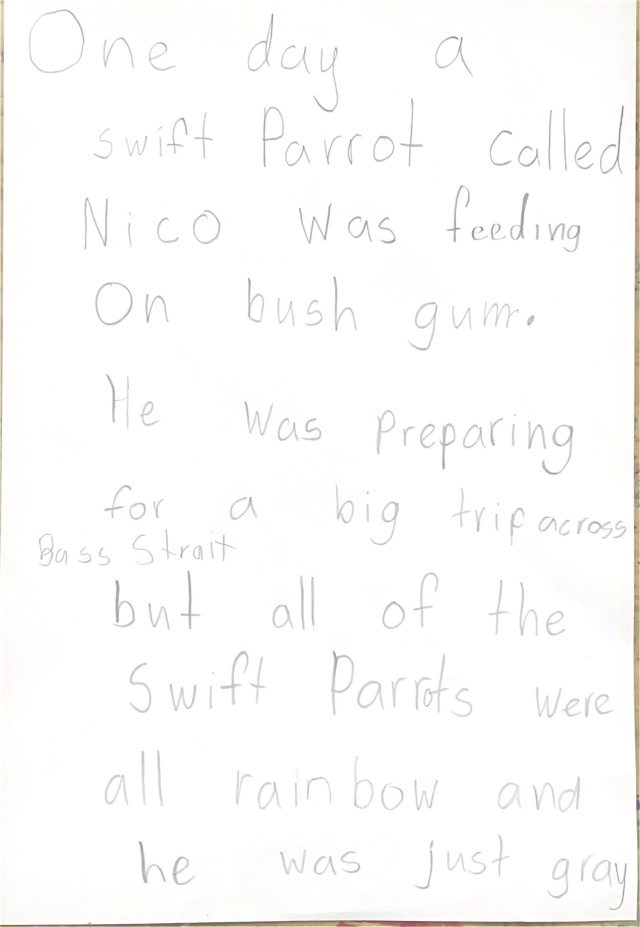 One day a
swift Parrot called
Nico was feeding
On bush gum.
He was preparing
for a big trip across
Bass Strait
but all of the
Swift Parrots were
all rainbow and
he was just gray